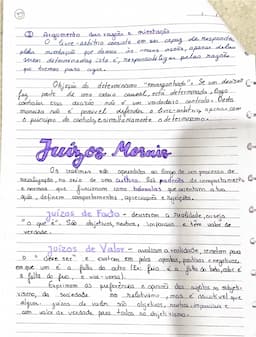 ① Argumento das razões e intenção
O livre-arbítrio consiste em ser capaz de responder
pelas
serem determinadas isto é, responsabilizar pelas razões
que temos para agir.
Objeção do determinismo "envergonhado": Se um decisão
faz parte de uma cadeia causal, está determinada, logo
controlar essa decisão não é um verdadeiro controlo. Desta
maneira não é possível defender o livre-arbítrio apenas com
o princípio do controlo e simultaneamente o determinismo.
Juízos Morais
Os costumes são aprendidos ao longo de um processo de
socialização, no seio de uma cultura. São padrões de comportamento
e normas que funcionam como tabuadas que orientam a nossa
ação, definem comportamentos, apreciações e rejeições.
Juízos de Facto - descrevem a realidade, ou seja
"o que é". São objetivos, neutros, impessoais e têm valor de
verdade.
Juízos de Valor - avaliam a realidade, remetem para
o "dever ser" e avaliam em polos opostos, positivos e negativos,
em que um é a falta do outro (Ex: feio é a falta do belo, belo é
a falta do feio, e vice-versa).
Exprimem as preferências e opiniões dos sujeitos no subjeti-
vismo, da sociedade no relativismo, mas é discutível que
alguns juízos de valor são objetivos, neutros, impessoais e
com valor de verdade para todos no objetivismo.